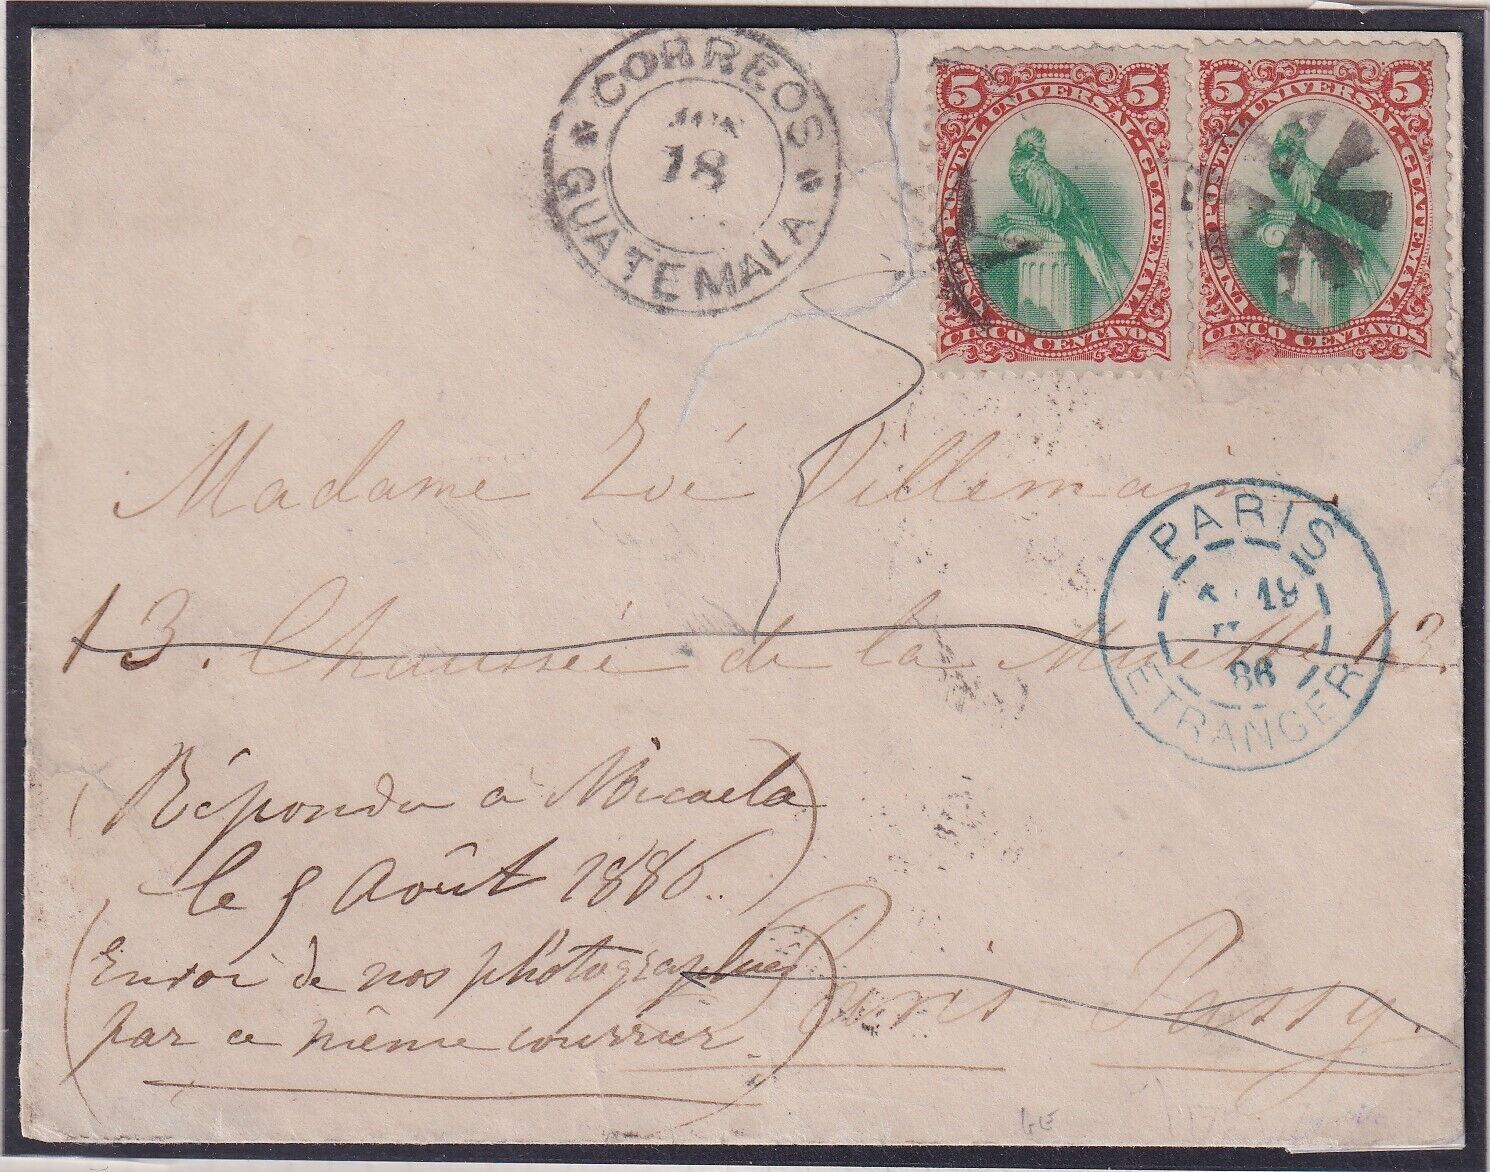 CORREOS
JUN
18
GUATEMALA
5 5
UNION POSTAL UNIVERSAL GUATEMALA
CINCO CENTAVOS
5 5
UNION POSTAL UNIVERSAL GUATEMALA
CINCO CENTAVOS
Madame Zoé Villemain,
13. Chaussée de la Muette 13.
PARIS
18
86
ETRANGER
(Répondu à Micaela
le 5 Août 1886..)
(Envoi de nos photographies
par ce même courrier)
Paris-Passy.